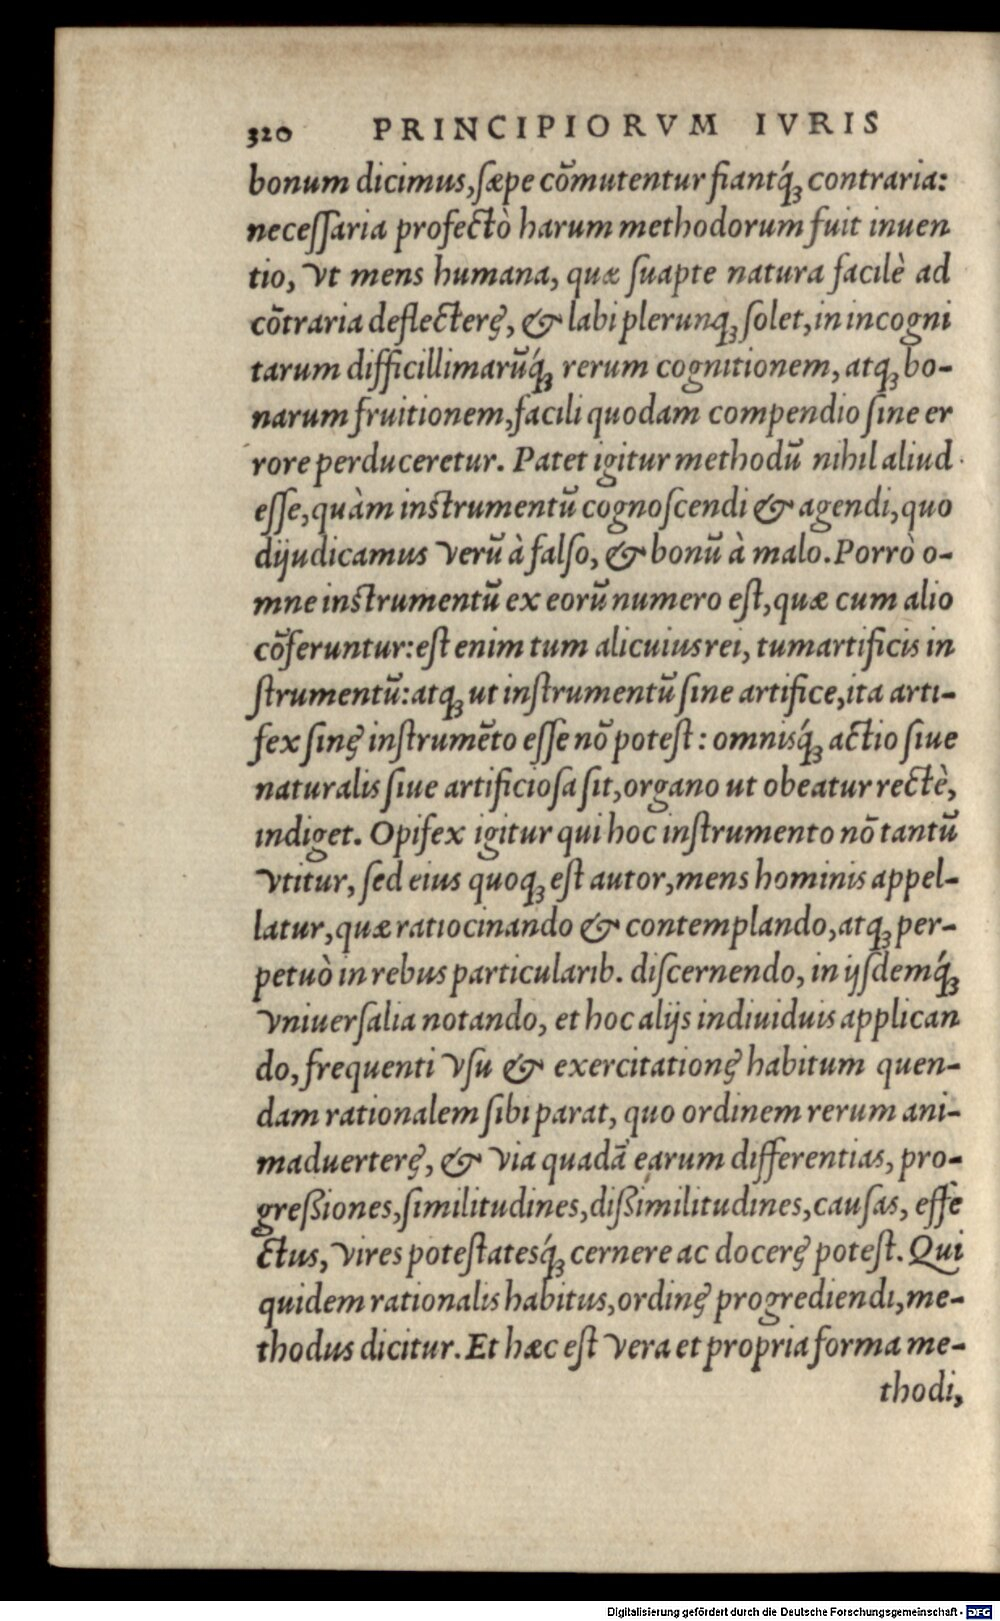 320 PRINCIPIORVM IVRIS
bonum dicimus, sæpe cōmutentur fiantq́ꝫ contraria:
necessaria profectò harum methodorum fuit inuen
tio, vt mens humana, quæ suapte natura facilè ad
cōtraria deflectere, & labi plerunqꝫ solet, in incogni
tarum difficillimarūq́ꝫ rerum cognitionem, atqꝫ bo-
narum fruitionem, facili quodam compendio sine er
rore perduceretur. Patet igitur methodū nihil aliud
esse, quàm instrumentū cognoscendi & agendi, quo
dijudicamus verū à falso, & bonū à malo. Porrò o-
mne instrumentū ex eorū numero est, quæ cum alio
cōferuntur: est enim tum alicuius rei, tum artificis in
strumentū: atqꝫ ut instrumentū sine artifice, ita arti-
fex sine instrumēto esse nō potest: omnisq́ꝫ actio siue
naturalis siue artificiosa sit, organo ut obeatur rectè,
indiget. Opifex igitur qui hoc instrumento nō tantū
vtitur, sed eius quoqꝫ est autor, mens hominis appel-
latur, quæ ratiocinando & contemplando, atqꝫ per-
petuò in rebus particularib. discernendo, in ijsdemq́ꝫ
vniuersalia notando, et hoc alijs indiuiduis applican
do, frequenti vsu & exercitatione habitum quen-
dam rationalem sibi parat, quo ordinem rerum ani-
maduertere, & via quadā earum differentias, pro-
greßiones, similitudines, dißimilitudines, causas, effe
ctus, vires potestatesq́ꝫ cernere ac docere potest. Qui
quidem rationalis habitus, ordine progrediendi, me-
thodus dicitur. Et hæc est vera et propria forma me-
thodi,
Digitalisierung gefördert durch die Deutsche Forschungsgemeinschaft - DFG